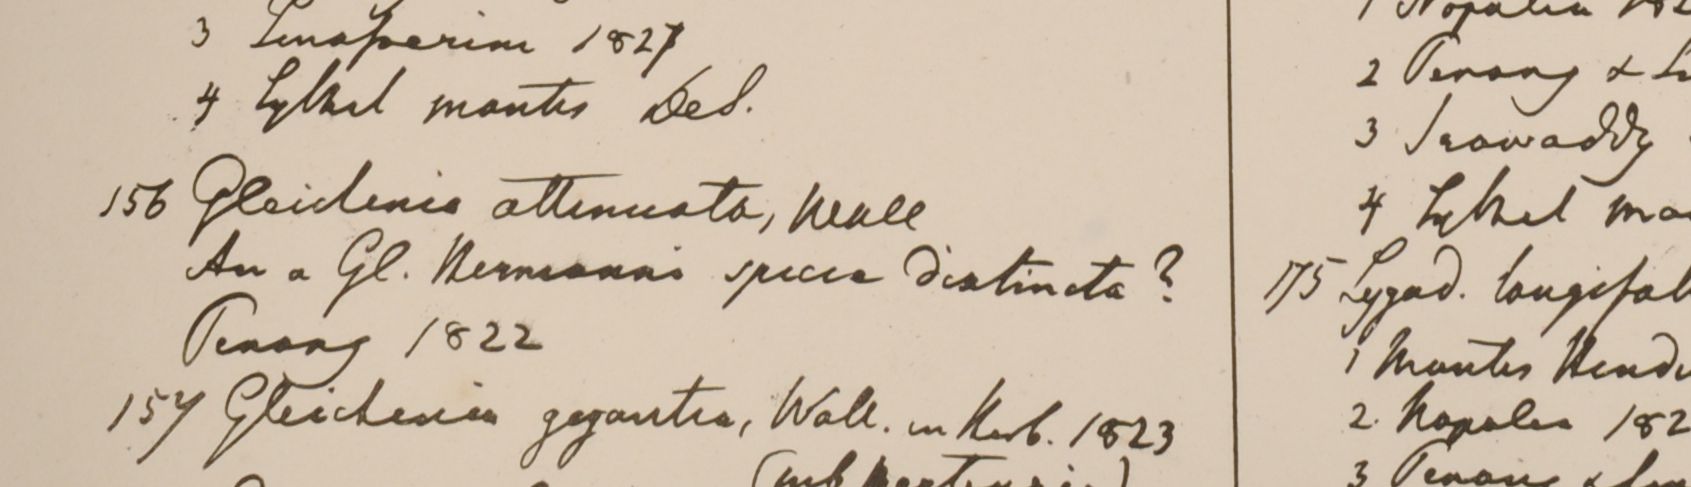 3 Singaporium 1827
4 Sylhet montes DeS.
156 Gleichenia attenuata, Wall
An a Gl. Hermanni specie distincta?
Penang 1822
157 Gleichenia gigantea, Wall. in Herb. 1823
1 Nopalia 182
2 Penang &
3 Irawaddy
4 Sylhet mo
175 Lygod. longifol
1 Montes
2 Napalea 182
3 Penang &